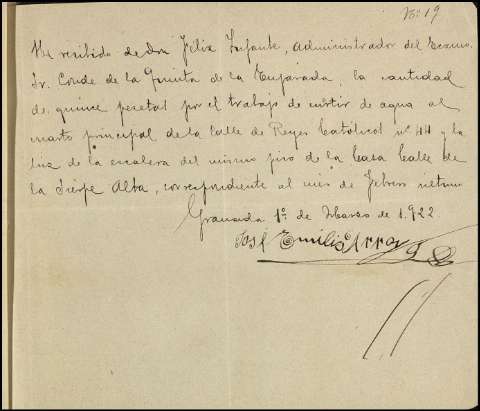 Nº 19
He recibido de Don Félix Infante, Administrador del Excmo.
Sr. Conde de la Quinta de la Enjarada, la cantidad
de quince pesetas por el trabajo de surtir de agua al
cuarto principal de la Calle de Reyes Católicos nº 44 y la
luz de la escalera del mismo piso de la Casa Calle de
la Sierpe Alta, correspondiente al mes de Febrero ultimo
Granada 1º de Marzo de 1.922
José Emilio